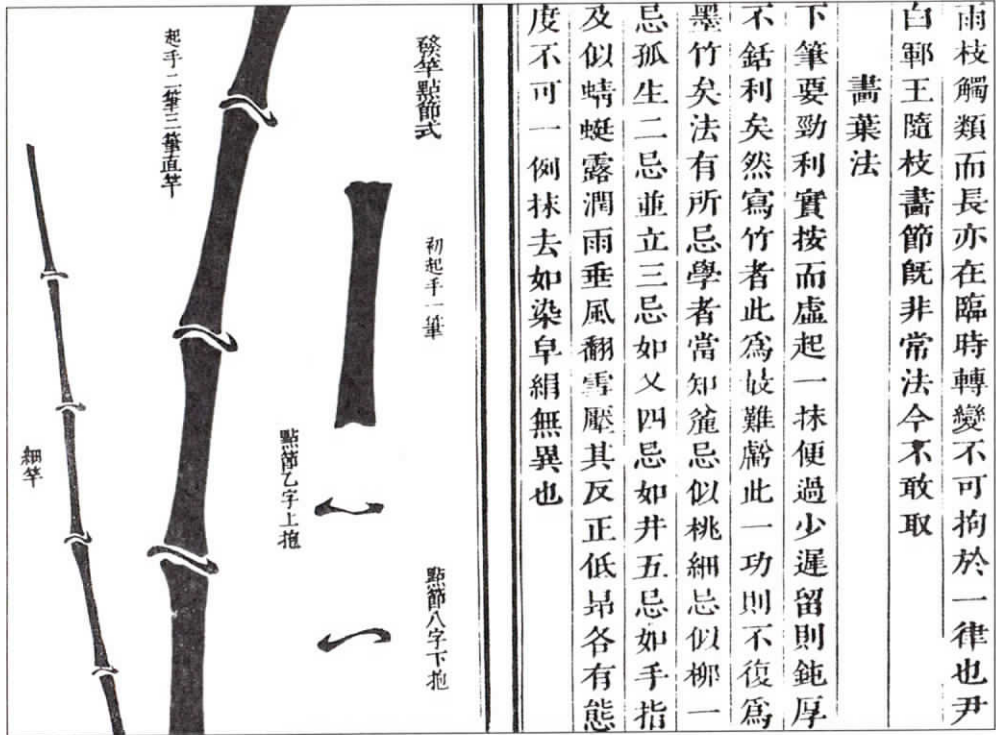 雨枝觸類而長亦在臨時轉變不可拘於一律也尹
白鄆王隨枝畵節旣非常法今不敢取
畵葉法
下筆要勁利實按而虛起一抹便過少遲留則鈍厚
不銛利矣然寫竹者此爲㚥難虧此一功則不復爲
墨竹矣法有所忌學者當知麄忌似桃細忌似柳一
忌孤生二忌並立三忌如乂四忌如井五忌如手指
及似蜻蜓露潤雨垂風翻雪壓其反正低昻各有態
度不可一例抹去如染皁絹無異也
發竿點節式
初起手一筆
點節乙字上抱
點節八字下抱
起手二筆三筆直竿
細竿